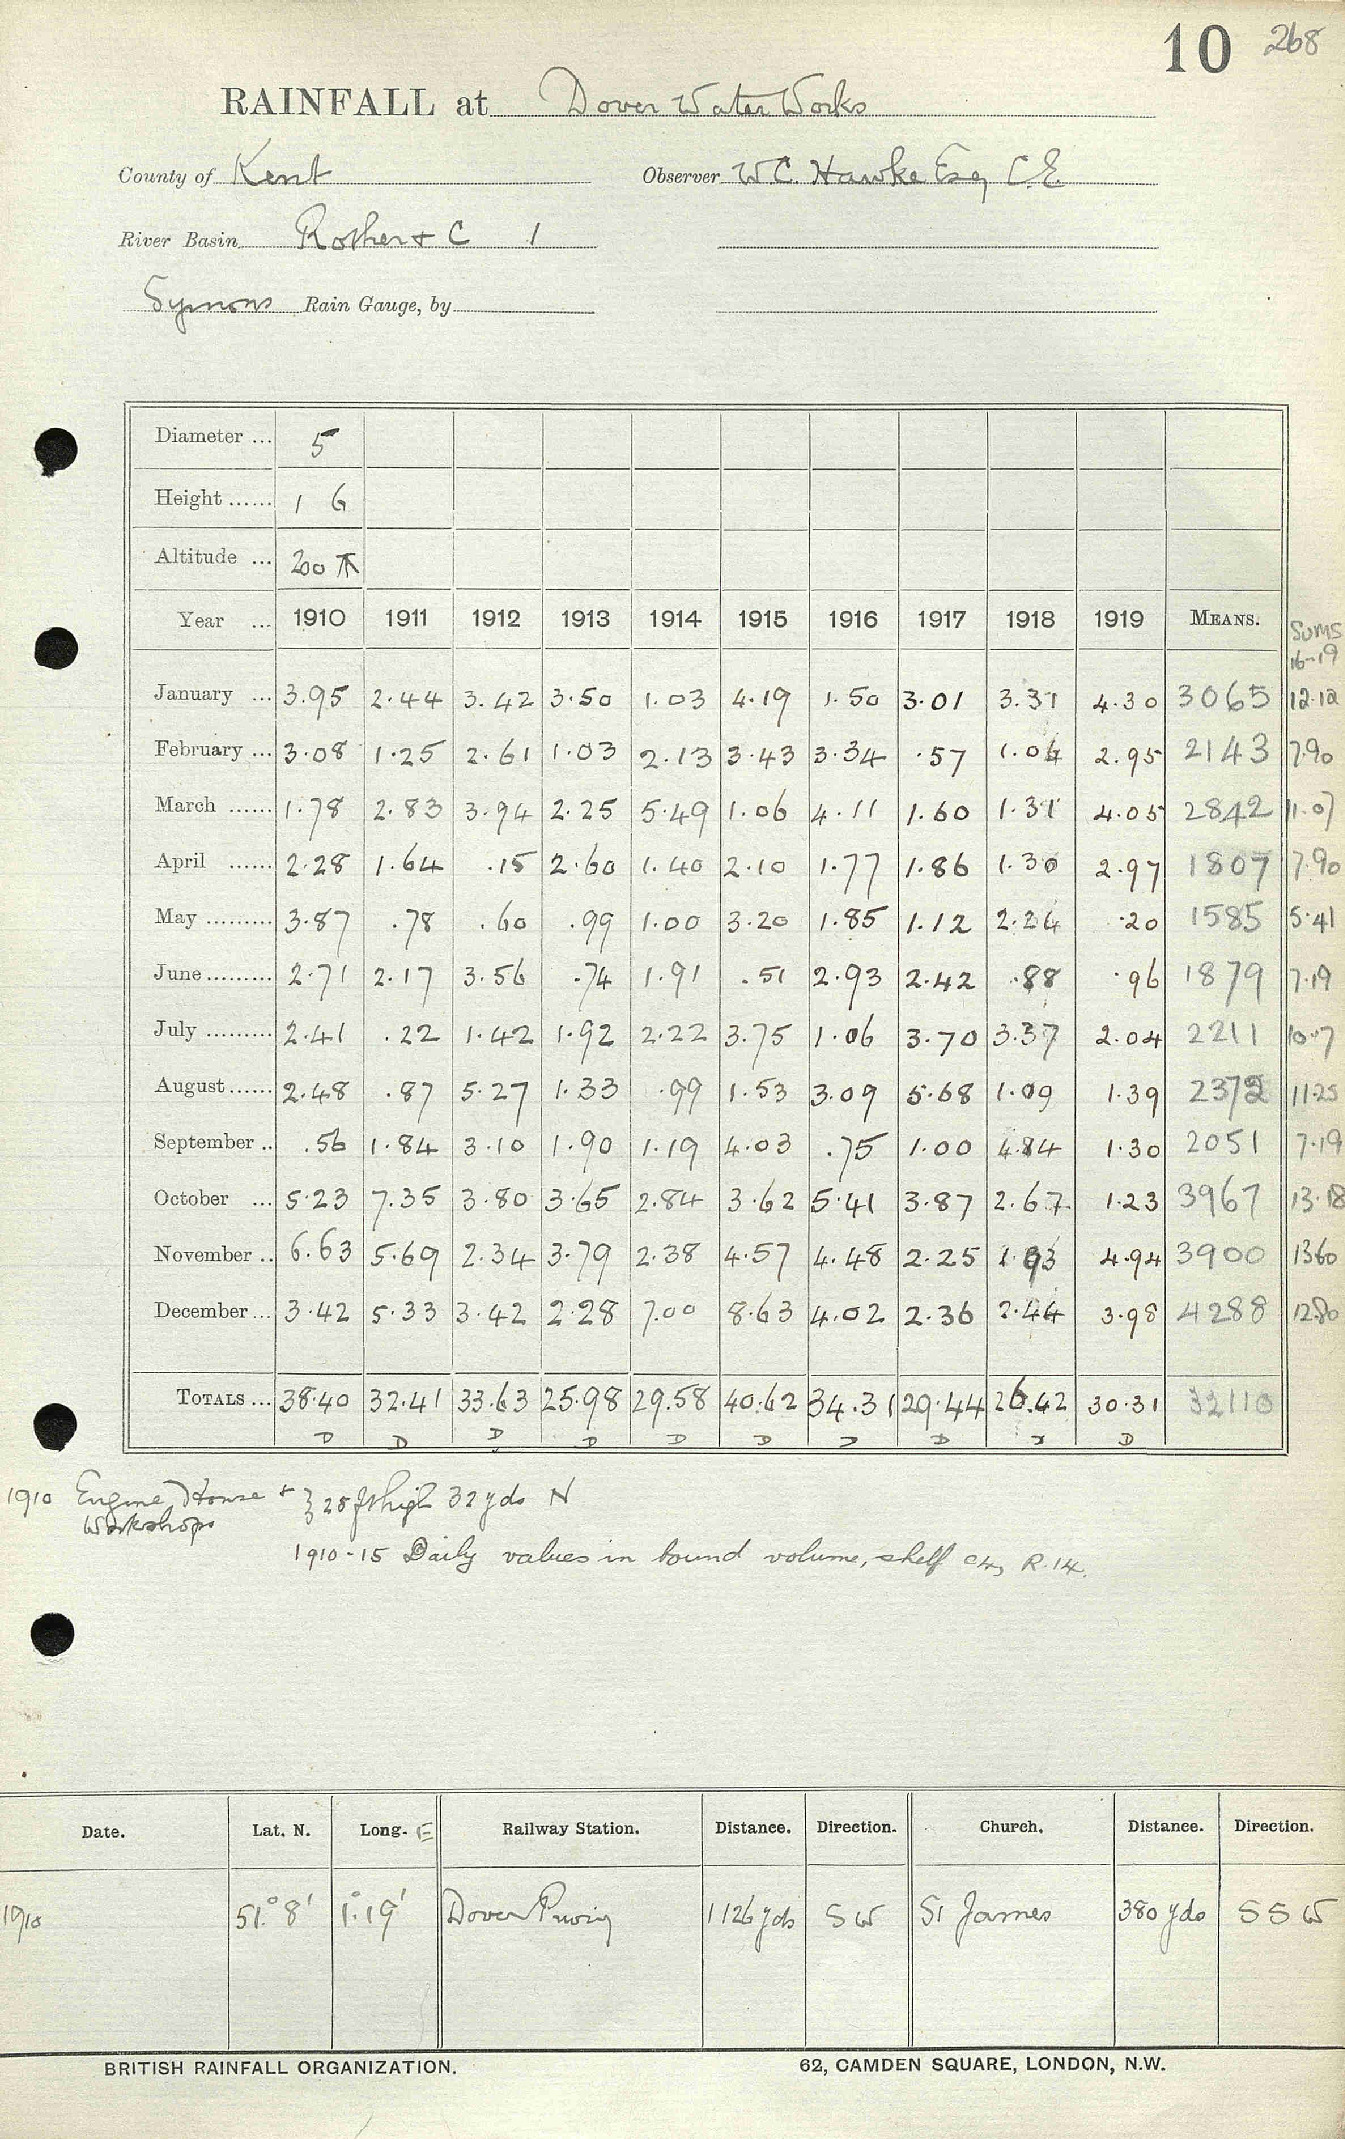 10 268
RAINFALL at Dover Water Works
County of Kent Observer W C. Hawke Esq C.E.
River Basin Rother & C 1
Symons Rain Gauge, by
Diameter ... 5
Height ...... 1 6
Altitude ... 200
Year ... 1910 1911 1912 1913 1914 1915 1916 1917 1918 1919 MEANS. Sums 16-19
January ... 3.95 2.44 3.42 3.50 1.03 4.19 1.50 3.01 3.31 4.30 3065 12.12
February ... 3.08 1.25 2.61 1.03 2.13 3.43 3.34 .57 1.04 2.95 2143 7.90
March ...... 1.78 2.83 3.94 2.25 5.49 1.06 4.11 1.60 1.31 4.05 2842 11.07
April ...... 2.28 1.64 .15 2.60 1.40 2.10 1.77 1.86 1.30 2.97 1807 7.90
May ......... 3.87 .78 .60 .99 1.00 3.20 1.85 1.12 2.24 .20 1585 5.41
June ......... 2.71 2.17 3.56 .74 1.91 .51 2.93 2.42 .88 .96 1879 7.19
July ......... 2.41 .22 1.42 1.92 2.22 3.75 1.06 3.70 3.37 2.04 2211 10.17
August ...... 2.48 .87 5.27 1.33 .99 1.53 3.09 5.68 1.09 1.39 2372 11.25
September .. .56 1.84 3.10 1.90 1.19 4.03 .75 1.00 4.84 1.30 2051 7.19
October ... 5.23 7.35 3.80 3.65 2.84 3.62 5.41 3.87 2.67 1.23 3967 13.18
November .. 6.63 5.69 2.34 3.79 2.38 4.57 4.48 2.25 1.93 4.94 3900 1360
December ... 3.42 5.33 3.42 2.28 7.00 8.63 4.02 2.36 2.44 3.98 4288 12.80
TOTALS ... 38.40 32.41 33.63 25.98 29.58 40.62 34.31 29.44 26.42 30.31 32110
D D D D D D D D D
1910 Engine House & } 28 ft high 32 yds N
Workshops
1910-15 Daily values in bound volume, shelf C4, R.14.
Date. Lat. N. Long. E Railway Station. Distance. Direction. Church. Distance. Direction.
1910 51° 8' 1° 19' Dover Priory 1126 yds SW St James 380 yds SSW
BRITISH RAINFALL ORGANIZATION. 62, CAMDEN SQUARE, LONDON, N.W.